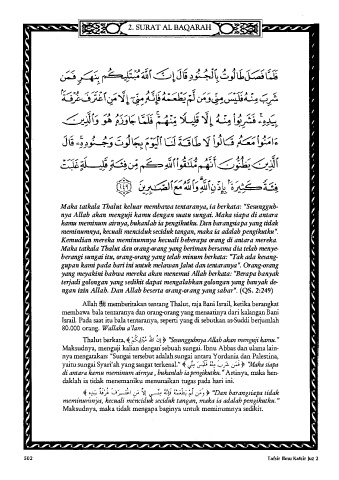 2. SURAT AL BAQARAH
فَلَمَّا فَصَلَ طَالُوتُ بِالْجُنُودِ قَالَ إِنَّ اللَّهَ مُبْتَلِيكُم بِنَهَرٍ فَمَن
شَرِبَ مِنْهُ فَلَيْسَ مِنِّي وَمَن لَّمْ يَطْعَمْهُ فَإِنَّهُ مِنِّي إِلَّا مَنِ اغْتَرَفَ غُرْفَةً
بِيَدِهِ فَشَرِبُوا مِنْهُ إِلَّا قَلِيلًا مِّنْهُمْ فَلَمَّا جَاوَزَهُ هُوَ وَالَّذِينَ
ءَامَنُوا مَعَهُ قَالُوا لَا طَاقَةَ لَنَا الْيَوْمَ بِجَالُوتَ وَجُنُودِهِ قَالَ
الَّذِينَ يَظُنُّونَ أَنَّهُم مُّلَاقُوا اللَّهِ كَم مِّن فِئَةٍ قَلِيلَةٍ غَلَبَتْ
فِئَةً كَثِيرَةً بِإِذْنِ اللَّهِ وَاللَّهُ مَعَ الصَّابِرِينَ ﴿٢٤٩﴾
Maka tatkala Thalut keluar membawa tentaranya, ia berkata: "Sesungguh-
nya Allah akan menguji kamu dengan suatu sungai. Maka siapa di antara
kamu meminum airnya, bukanlah ia pengikutku. Dan barangsiapa yang tidak
meminumnya, kecuali menciduk seciduk tangan, maka ia adalah pengikutku".
Kemudian mereka meminumnya kecuali beberapa orang di antara mereka.
Maka tatkala Thalut dan orang-orang yang beriman bersama dia telah menye-
berangi sungai itu, orang-orang yang telah minum berkata: "Tak ada kesang-
gupan kami pada hari ini untuk melawan Jalut dan tentaranya". Orang-orang
yang meyakini bahwa mereka akan menemui Allah berkata: "Berapa banyak
terjadi golongan yang sedikit dapat mengalahkan golongan yang banyak de-
ngan izin Allah. Dan Allah beserta orang-orang yang sabar". (QS. 2:249)
Allah ﷻ memberitakan tentang Thalut, raja Bani Israil, ketika berangkat
membawa bala tentaranya dan orang-orang yang menaatinya dari kalangan Bani
Israil. Pada saat itu bala tentaranya, seperti yang di sebutkan as-Suddi berjumlah
80.000 orang. Wallahu a'lam.
Thalut berkata, ﴾ إِنَّ اللَّهَ مُبْتَلِيكُم ﴿ "Sesungguhnya Allah akan menguji kamu."
Maksudnya, menguji kalian dengan sebuah sungai. Ibnu Abbas dan ulama lain-
nya mengatakan: "Sungai tersebut adalah sungai antara Yordania dan Palestina,
yaitu sungai Syari'ah yang sangat terkenal." ﴾ فَمَن شَرِبَ مِنْهُ فَلَيْسَ مِنِّي ﴿ "Maka siapa
di antara kamu meminum airnya, bukanlah ia pengikutku." Artinya, maka hen-
daklah ia tidak menemaniku menunaikan tugas pada hari ini.
﴾ وَمَن لَّمْ يَطْعَمْهُ فَإِنَّهُ مِنِّي إِلَّا مَنِ اغْتَرَفَ غُرْفَةً بِيَدِهِ ﴿ "Dan barangsiapa tidak
meminumnya, kecuali menciduk seciduk tangan, maka ia adalah pengikutku."
Maksudnya, maka tidak mengapa baginya untuk meminumnya sedikit.
502
Tafsir Ibnu Katsir Juz 2